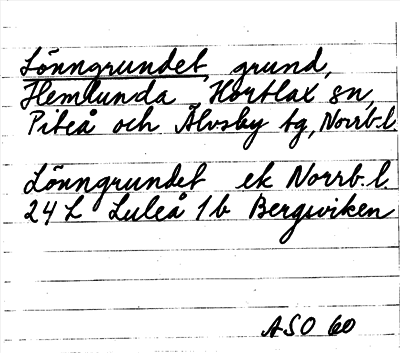 Lönngrundet, grund,
Hemlunda Hortlax sn,
Piteå och Älvsby tg, Norrb.l.
Lönngrundet ek Norrb.l.
24L Luleå 1b Bergsviken
ASO 60